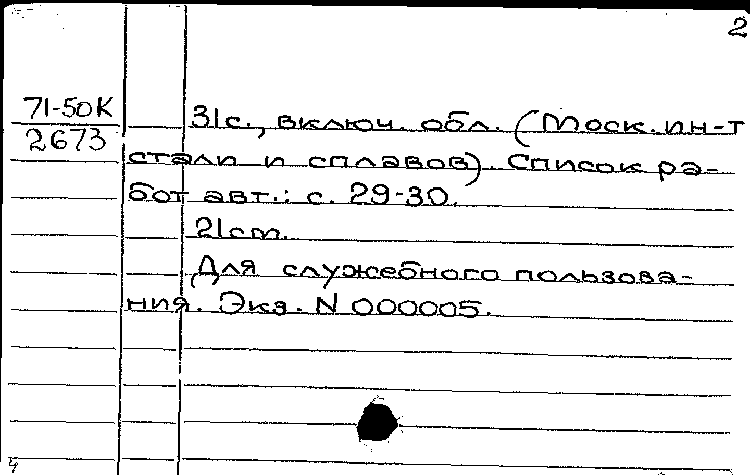 2
71-50К
2673
31с., включ. обл. (Моск. ин-т
стали и сплавов). Список ра-
бот авт.: с. 29-30.
21cm.
Для служебного пользова-
ния. Экз. N 000005.